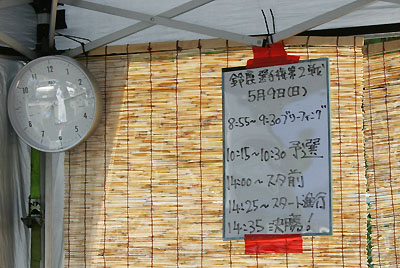 鈴鹿 第2戦
5月9日(日)
8:55~9:30ブリーフィング
10:15~10:30予選
14:00~スタ前
14:25~スタート進行
14:35 決勝!
12
1
2
3
4
5
6
7
8
9
10
11